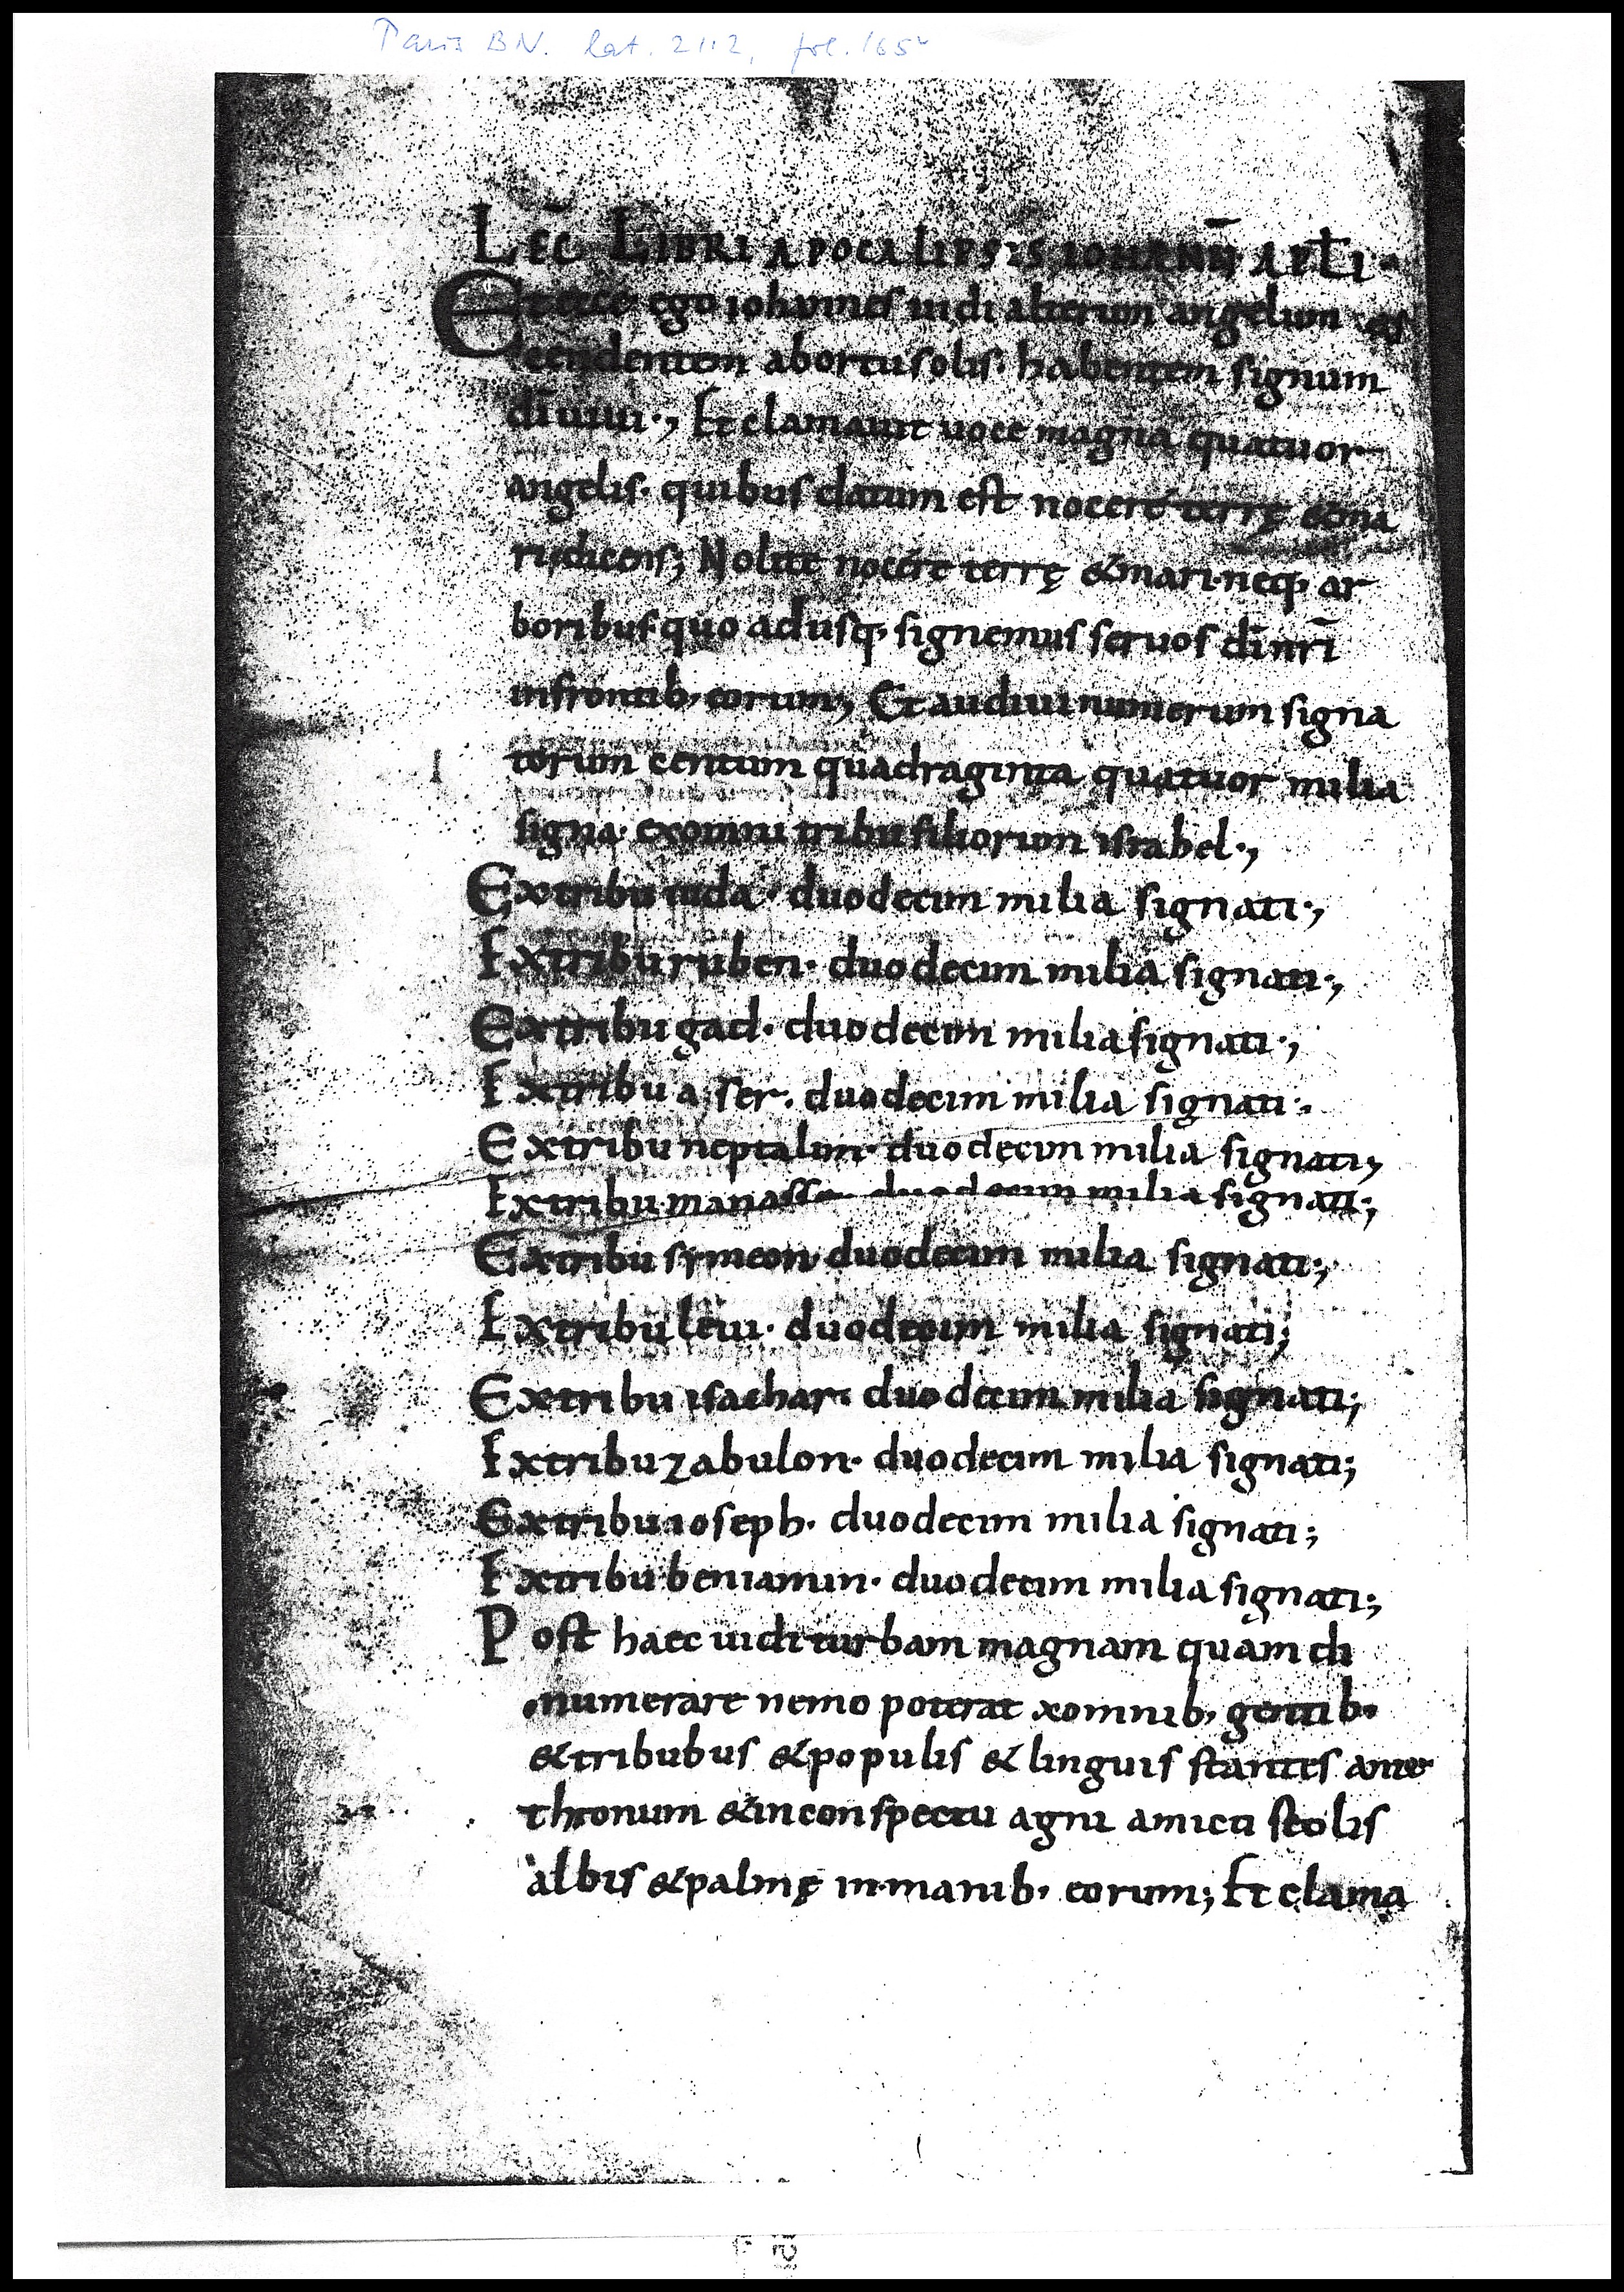 Paris BN. lat. 2112, fol. 165v
LEC̄ LIBRI APOCALIPSIS IOHANNI̅ APƚI·
Et ecce ego iohannes uidi alterum angelum as
cendentem abortusolis· habentem signum
dī uiui·, Et clamauit uoce magna quatuor
angelis· quibus datum est nocere terrę &ma
ridicens; Nolite nocere terrę &mari·neq· ar
boribus·quo adusq· signemus seruos dīnrī
infrontib· eorum; Et audiui numerum signa
torum centum quadraginta quatuor milia
signa· exomni tribu filiorum israhel·,
Extribu iuda· duodecim milia signati·,
Extribu ruben· duodecim milia signati·,
Extribu gad· duodecim milia signati·,
Extribu aser· duodecim milia signati·.
Extribu neptalim· duodecim milia signati;
Extribu manasse duodecim milia signati;
Extribu symeon· duodecim milia signati·,
Extribu leui· duodecim milia signati;
Extribu isachar· duodecim milia signati;
Extribu zabulon· duodecim milia signati;
Extribu ioseph· duodecim milia signati;
Extribu beniamin· duodecim milia signati;
Post haec uidi turbam magnam quam di
numerare nemo poterat xomnib· gentib·
&tribubus &populis &linguis stantes ante
thronum &inconspectu agni amicti stolis
albis &palmę in·manib· eorum; Et clama